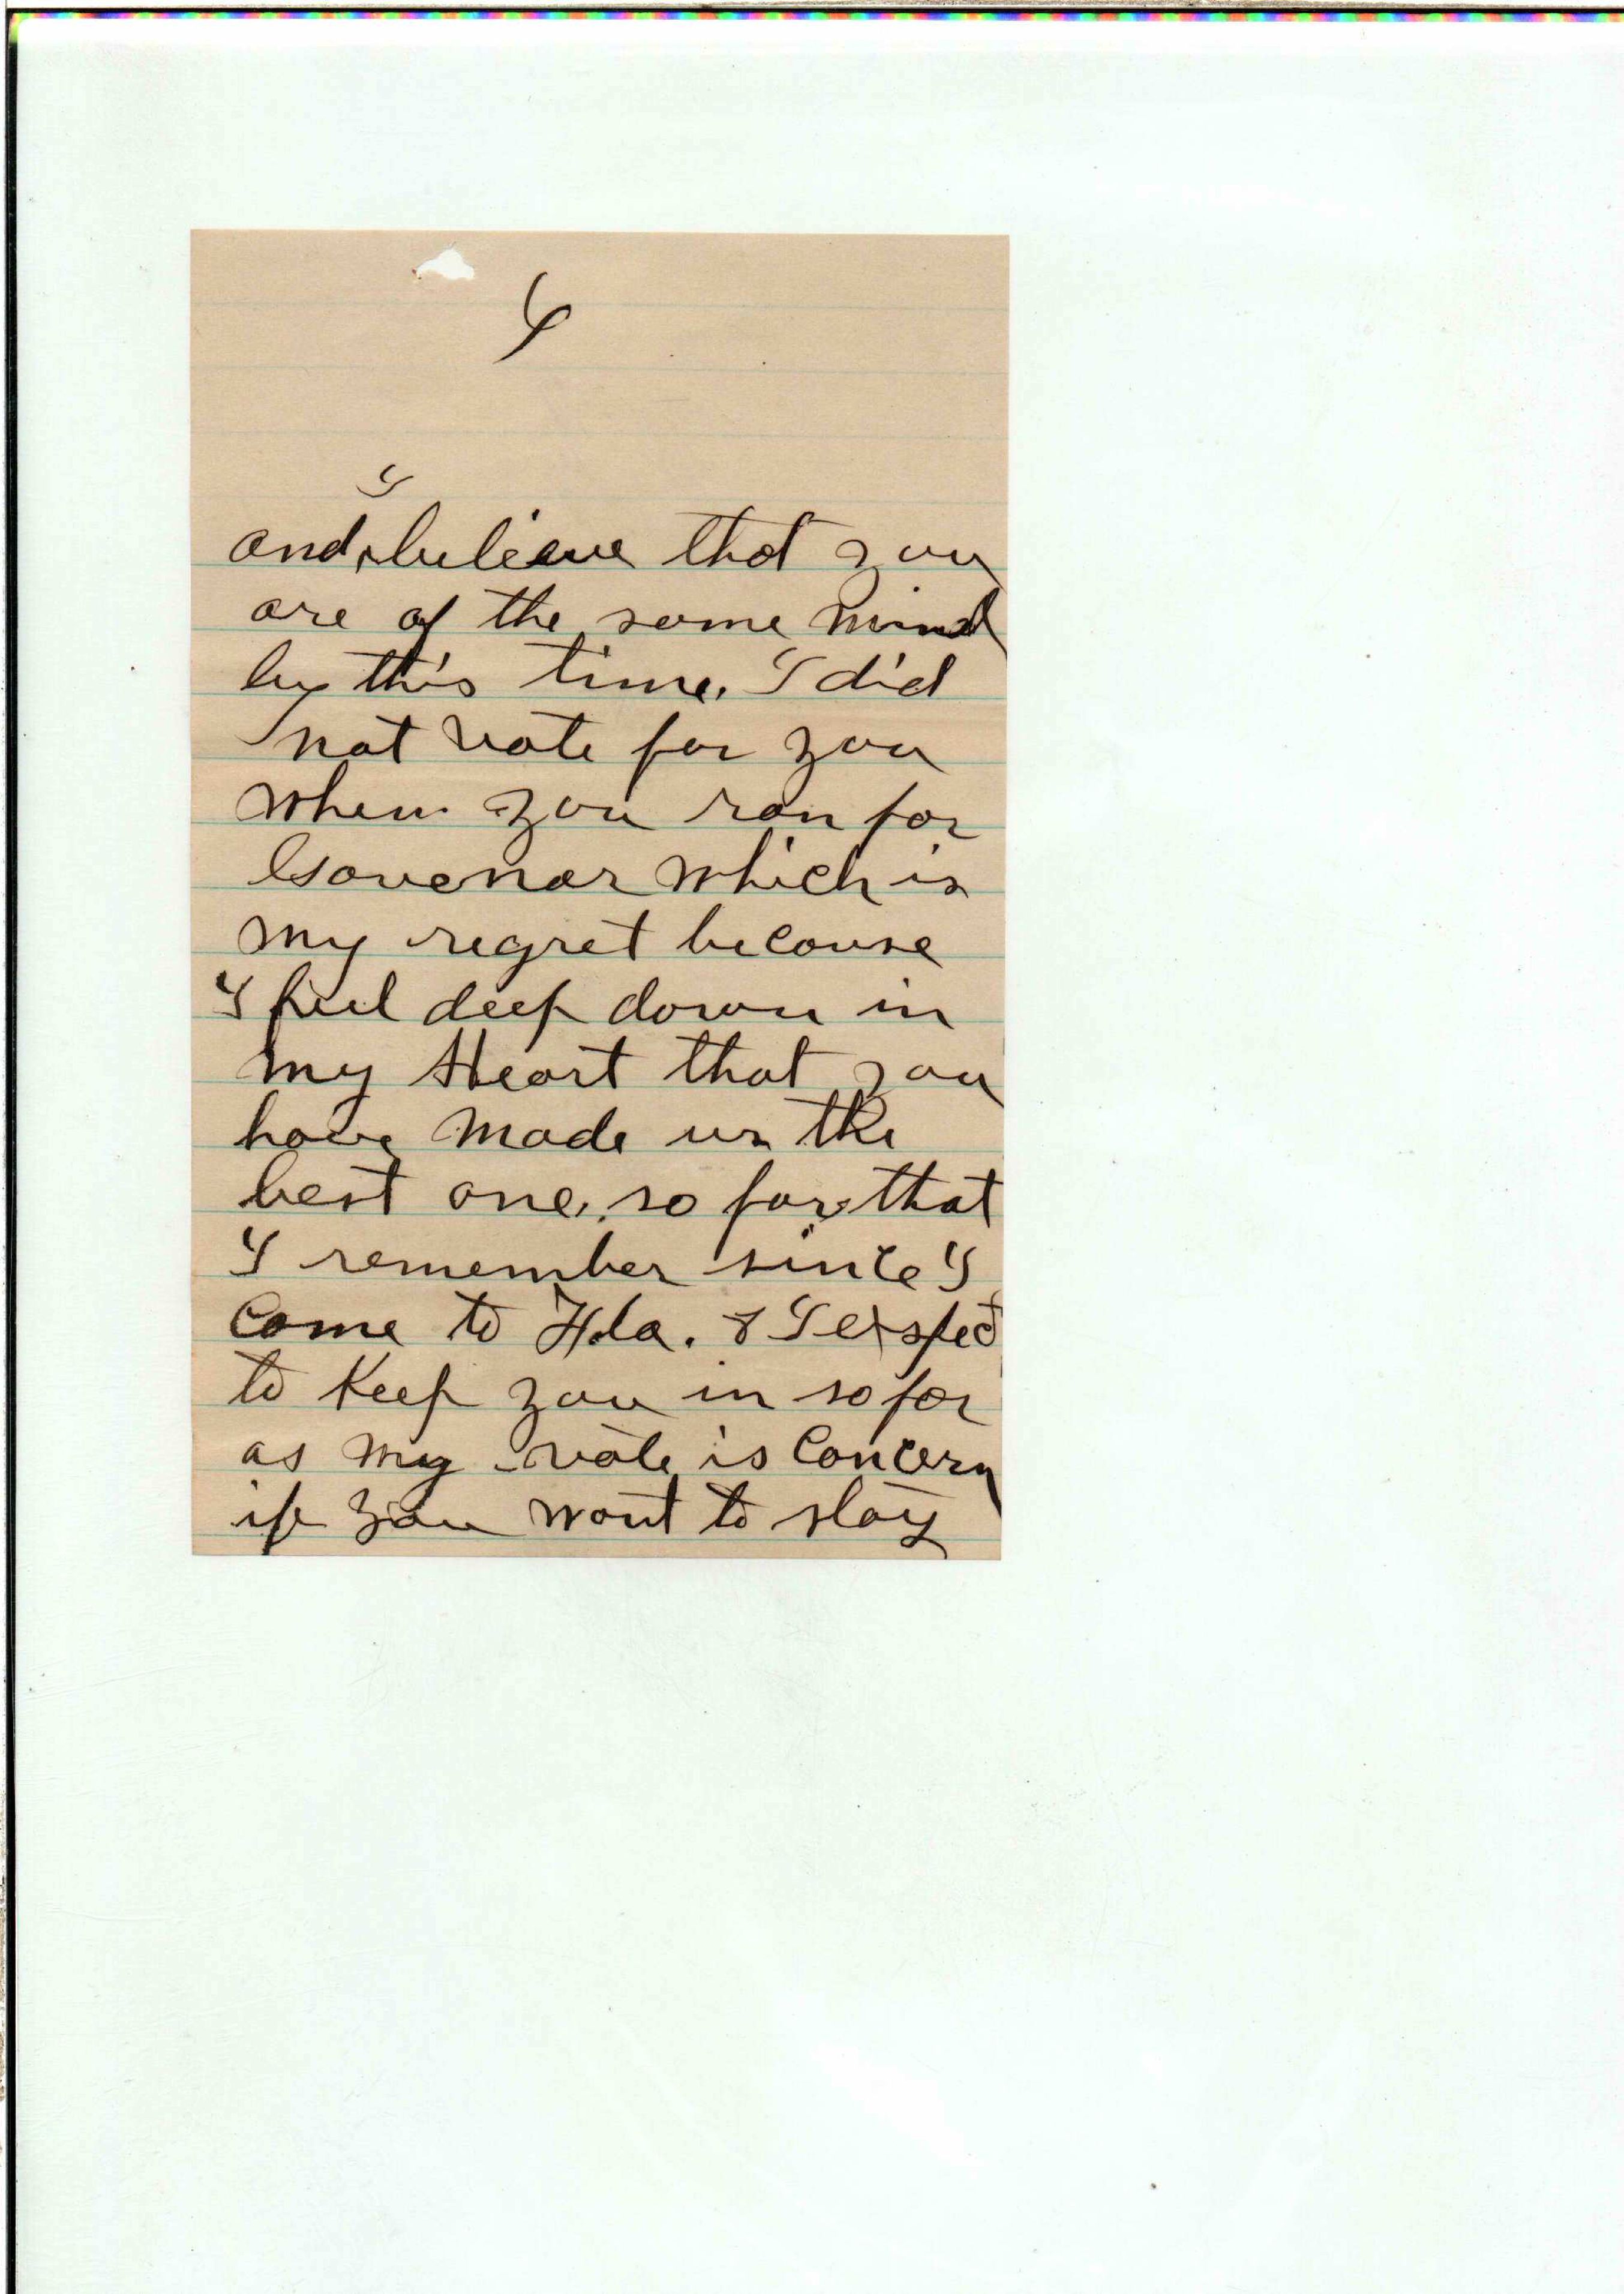 4
I
and believe that you
are of the same mind
by this time. I did
not vote for you
when you ran for
Govenor which is
my regret because
I feel deep down in
my Heart that you
have made us the
best one, so far, that
I remember since I
come to Fla. & I exspect
to Keep you in so far
as my vote is Concern
if you want to stay